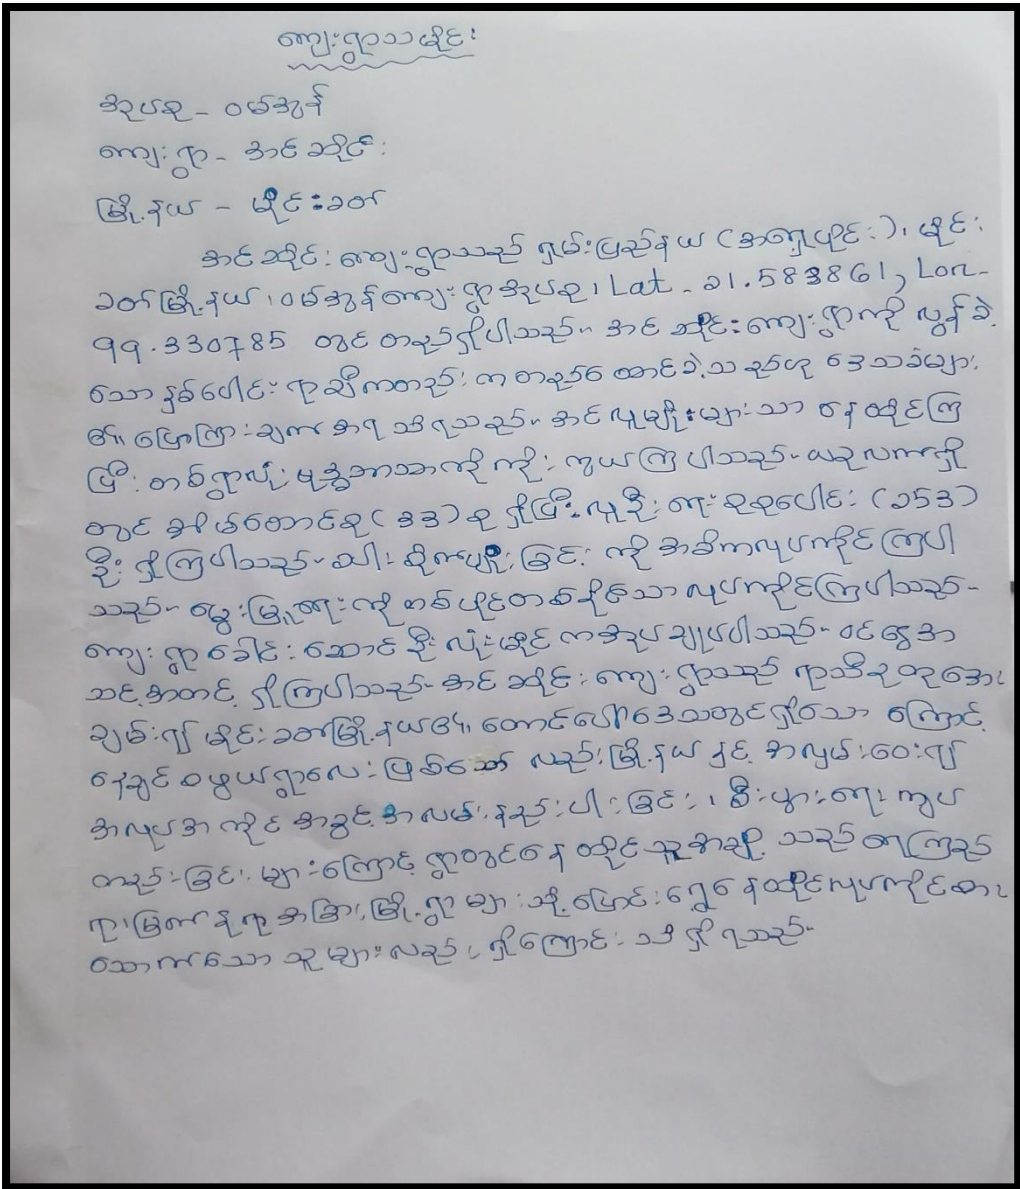 ကျေးရွာသမိုင်း
အုပ်စု - ဝမ်အွန်
ကျေးရွာ - အင်ဆိုင်း
မြို့နယ် - မိုင်းခတ်
အင်ဆိုင်းကျေးရွာသည် ရှမ်းပြည်နယ် (အရှေ့ပိုင်း)၊ မိုင်း
ခတ်မြို့နယ်၊ ဝမ်အွန်ကျေးရွာအုပ်စု၊ Lat - 21.583861, Lon-
99.330785 တွင် တည်ရှိပါသည်။ အင်ဆိုင်းကျေးရွာကို လွန်ခဲ့
သော နှစ်ပေါင်း ရာချီကတည်းက တည်ထောင်ခဲ့သည်ဟု ဒေသခံများ
၏ ပြောကြားချက်အရ သိရသည်။ အင်လူမျိုးများသာ နေထိုင်ကြ
ပြီး တစ်ရွာလုံး ဗုဒ္ဓဘာသာကို ကိုးကွယ်ကြပါသည်။ ယခုလက်ရှိ
တွင် အိမ်ထောင်စု (၃၃) စု ရှိပြီး လူဦးရေ စုစုပေါင်း (၁၅၃)
ဦး ရှိကြပါသည်။ သီးနှံစိုက်ပျိုးခြင်း ကို အဓိကလုပ်ကိုင်ကြပါ
သည်။ မွေးမြူရေးကို တစ်ပိုင်တစ်နိုင်သာ လုပ်ကိုင်ကြပါသည်။
ကျေးရွာခေါင်းဆောင် ဦးလုံးဆိုင် ကအုပ်ချုပ်ပါသည်။ ဝင်ငွေအ
သင့်အတင့် ရှိကြပါသည်။ အင်ဆိုင်းကျေးရွာသည် ရာသီဥတုအေး
ချမ်း၍ မိုင်းခတ်မြို့နယ်၏ တောင်ပေါ်ဒေသတွင်ရှိသော ကြောင့်
နေချင်စဖွယ်ရွာလေးဖြစ်သော် လည်း မြို့နယ်နှင့် အလှမ်းဝေး၍
အလုပ်အကိုင် အခွင့်အလမ်း နည်းပါးခြင်း၊ စီးပွားရေး ကျပ်
တည်းခြင်းများကြောင့် ရွာတွင်နေထိုင်သူအချို့ သည် တာကြည်
ရာ၊ မြတ်နိုးရာ အခြားမြို့ရွာများသို့ ပြောင်းရွှေ့နေထိုင်လုပ်ကိုင်စား
သောက်သော သူများလည်း ရှိကြောင်း သိရှိရသည်။